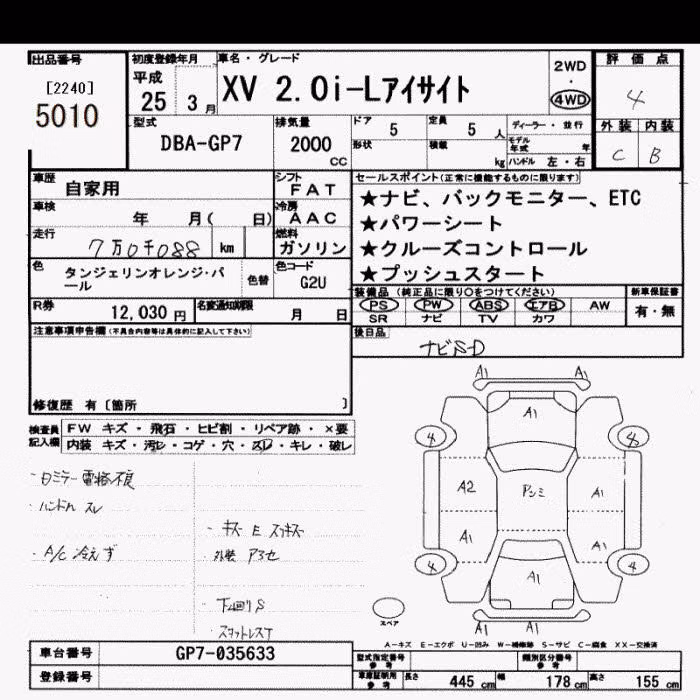 出品番号
[2240]
5010
初度登録年月
平成
25 3 月
車名・グレード
XV 2.0i-Lアイサイト
2WD
・
4WD
評価点
4
外装 内装
C B
型式
DBA-GP7
排気量
2000
CC
ドア 5
定員 5 人
形状
積載 kg
ディーラー・並行
モデル年式 年
ハンドル 左・右
車歴
自家用
シフト
FAT
車検
年 月( 日)
冷房
AAC
走行
7万0千088 km
燃料
ガソリン
色
タンジェリンオレンジ・パール
色替
色コード
G2U
R券
12,030 円
名変通知期限
月 日
セールスポイント(正常に機能するものに限ります)
★ナビ、バックモニター、ETC
★パワーシート
★クルーズコントロール
★プッシュスタート
装備品(純正品に限り○をつけてください)
PS PW ABS エアB AW
SR ナビ TV カワ
新車保証書
有・無
後日品
ナビS-D
注意事項申告欄(不具合内容等は具体的に記入して下さい)
修復歴 有〔箇所 〕
検査員
記入欄
FW キズ・飛石・ヒビ割・リペア跡・×要
内装 キズ・汚レ・コゲ・穴・スレ・キレ・破レ
・Dミラー電格不良
・ハンドル スレ
・A/C 冷えず
・キズ E スリキズ
・下回りS
A1 A1
A1
4 4
A2 アシミ A1
A1 A1
4 4
A1
A1 A1
スペア
A-キズ E-エクボ U-凹み W-補修跡 S-サビ C-腐食 XX-交換済
車台番号
GP7-035633
登録番号
型式指定番号
参考
類別区分番号
参考
車庫証明用
参考
長さ 445 cm
幅 178 cm
高さ 155 cm